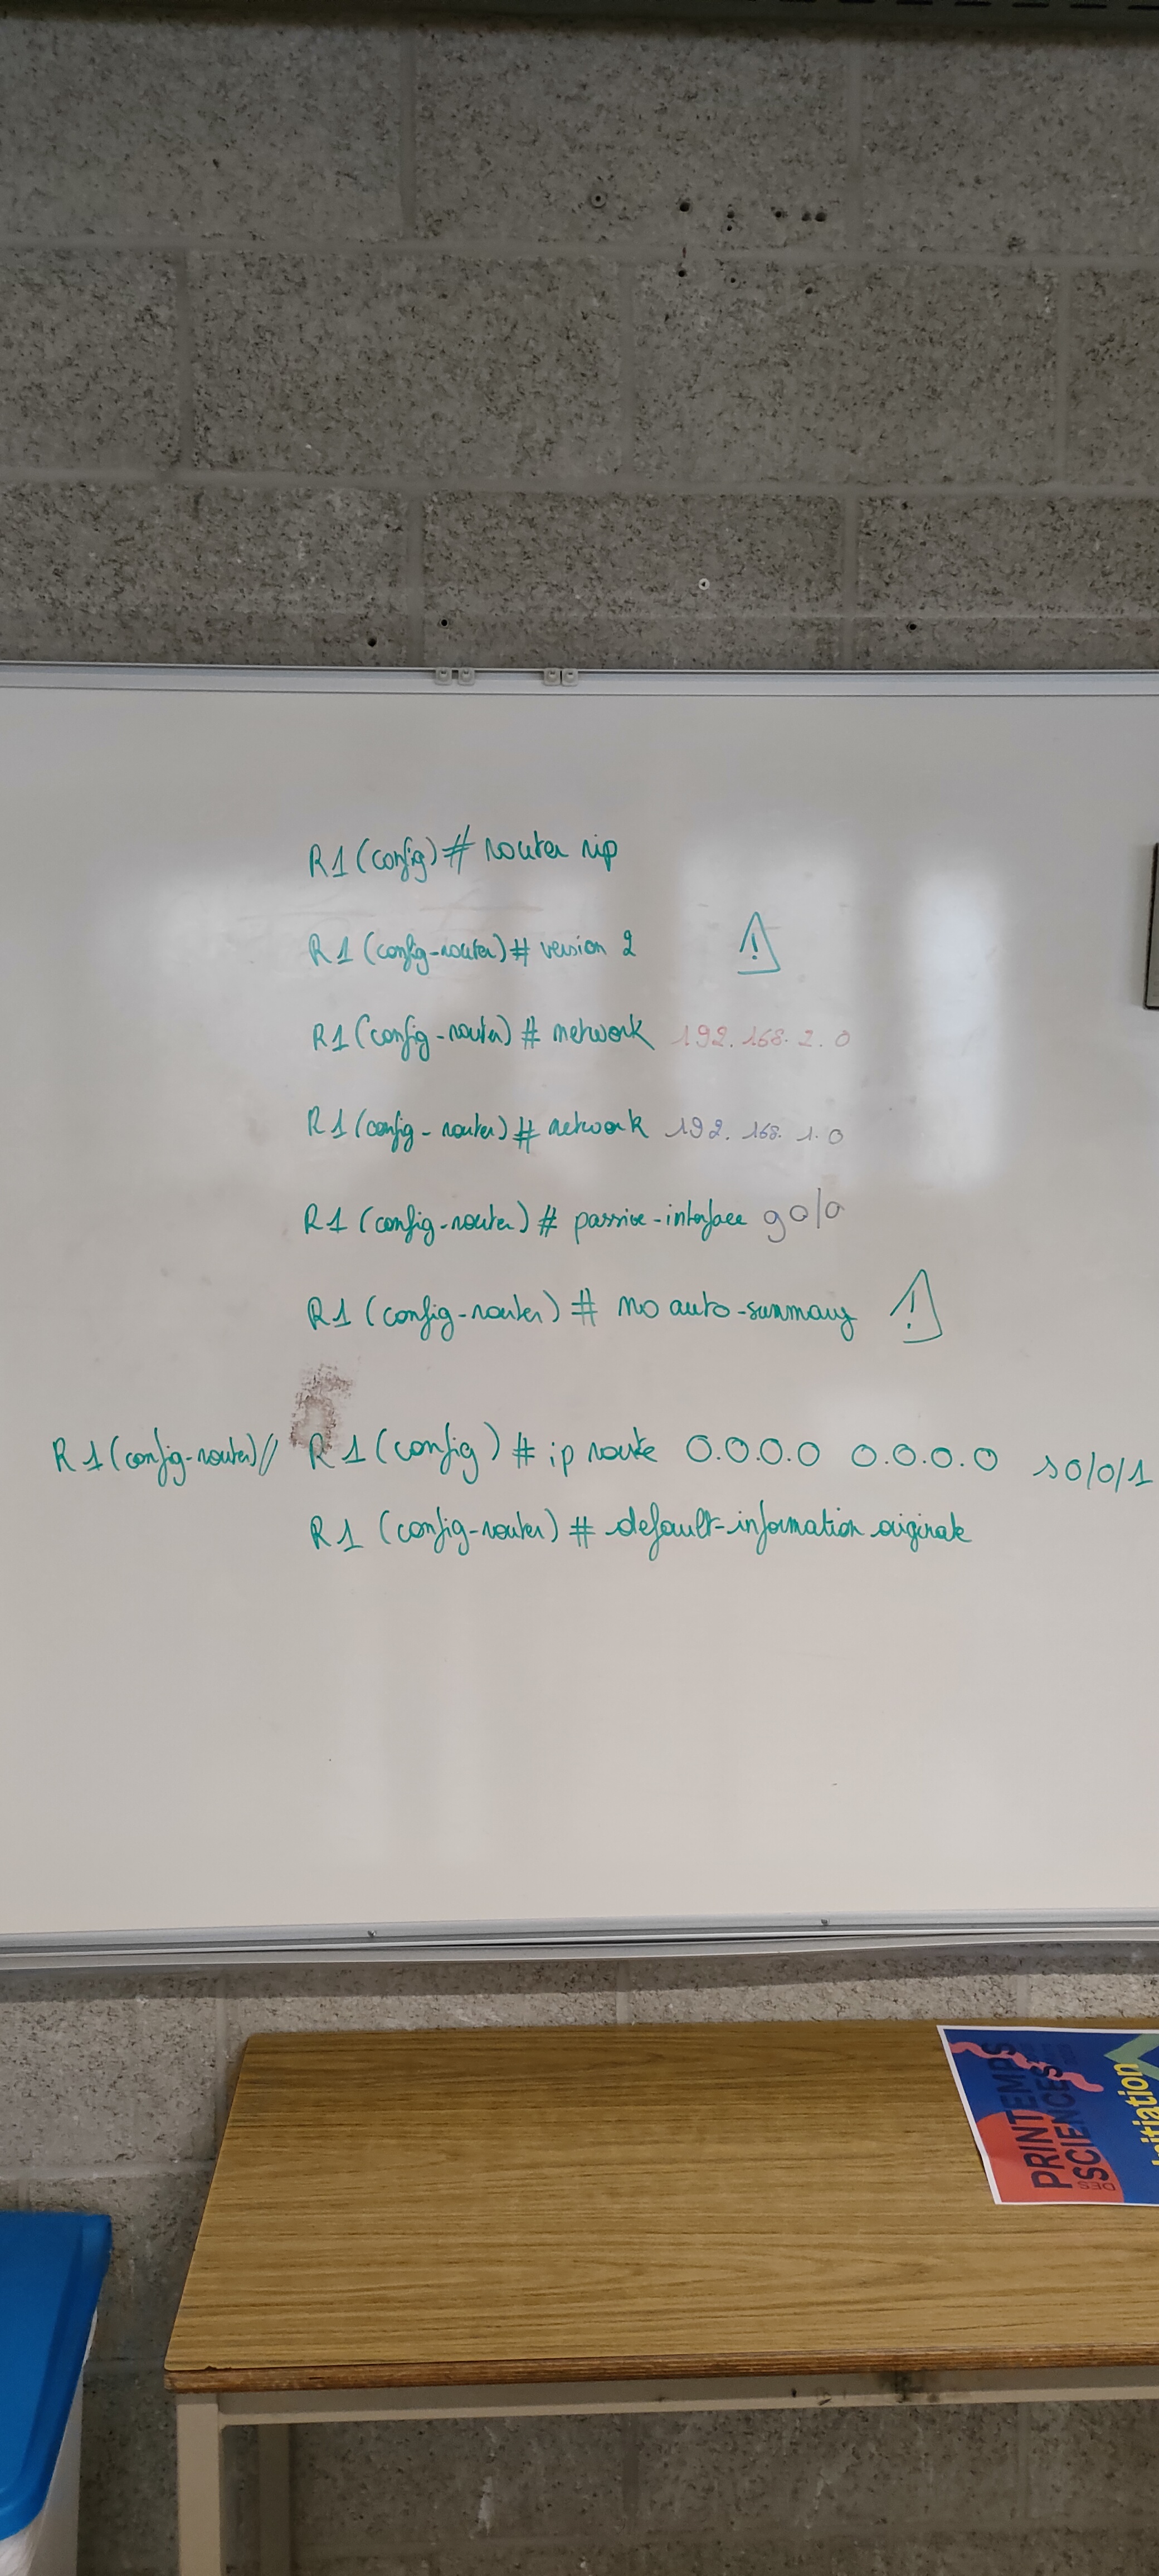 R1(config)# router rip
R1(config-router)# version 2 !
R1(config-router)# network 192.168.2.0
R1(config-router)# network 192.168.1.0
R1(config-router)# passive-interface g0/0
R1(config-router)# no auto-summary !
R1(config-router)// R1(config)# ip route 0.0.0.0 0.0.0.0 s0/0/1
R1(config-router)# default-information originate
PRINTEMPS
DES
SCIENCES